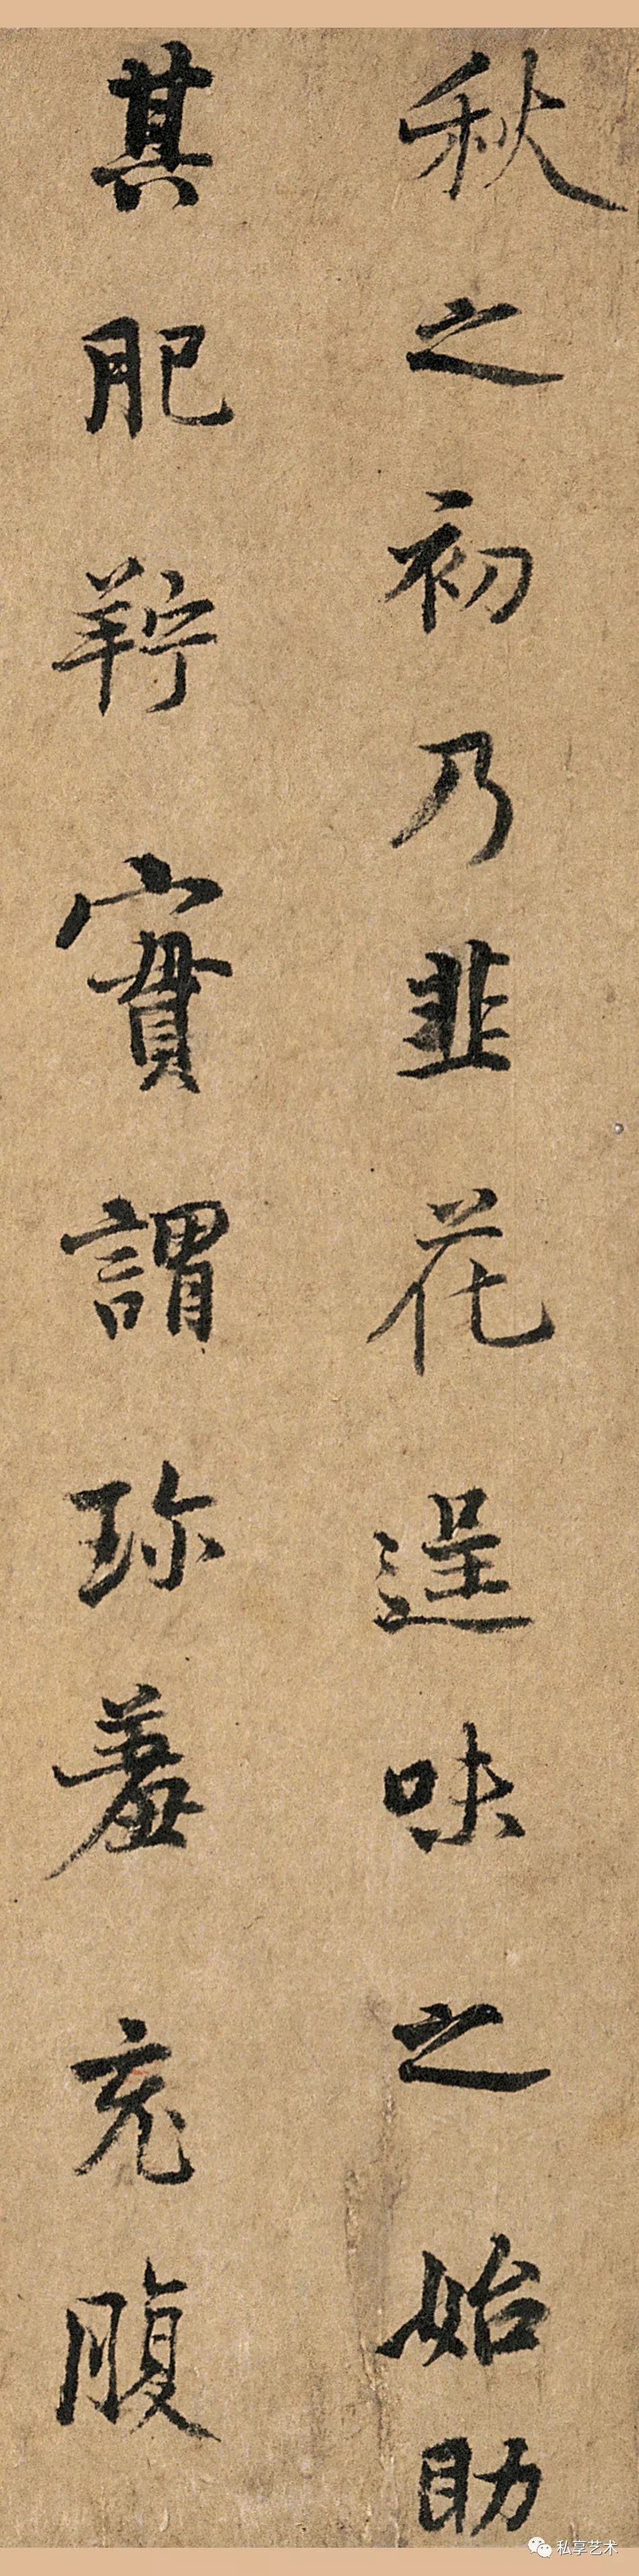 秋之初乃韭花逞味之始助
其肥羜實謂珍羞充腹
私享艺术